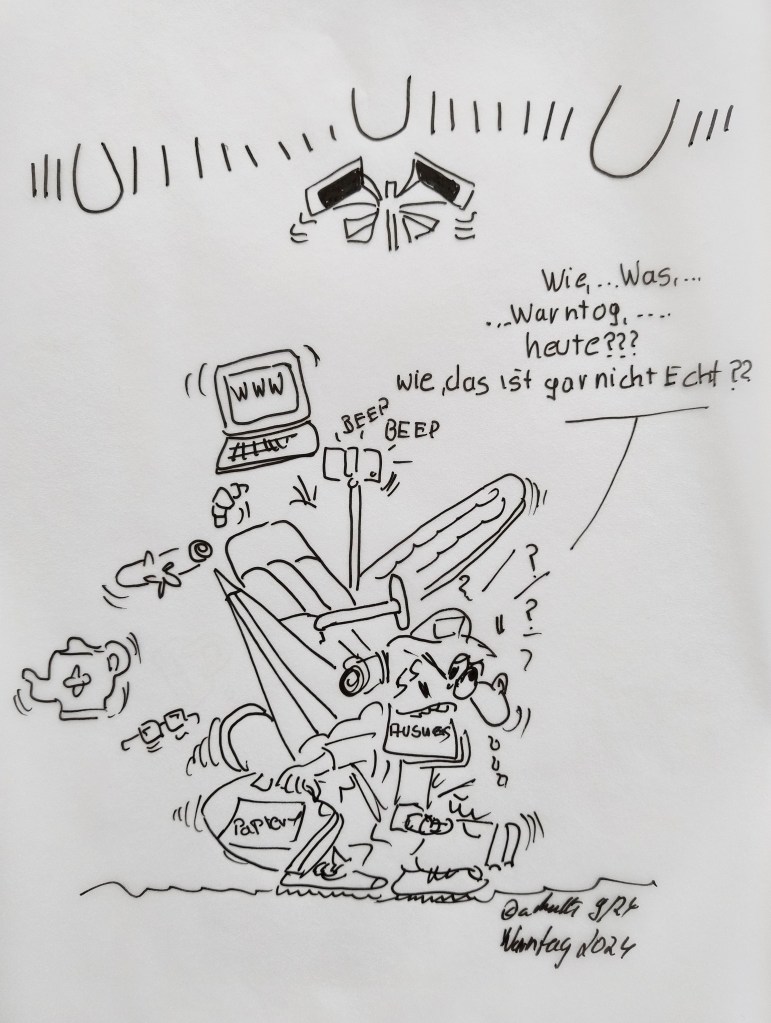 Wie, ...Was,...
...Warntog, ....
heute???
wie, das ist gar nicht Echt??
WWW
BEEP
BEEP
?
?
?
?
AUSWEIS
9/24
Warntag 2024